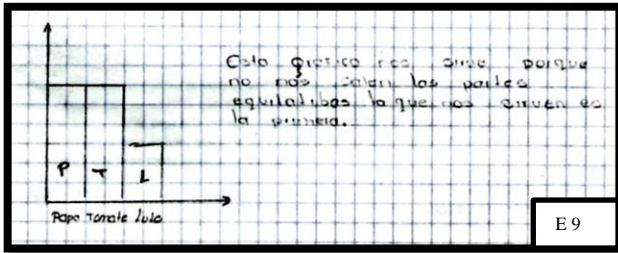 Esta grafico nos sirve porque
no nos salen las partes
equitatibas la que nos sirven es
la primera.
P T L
Papa Tomate lulo
E 9